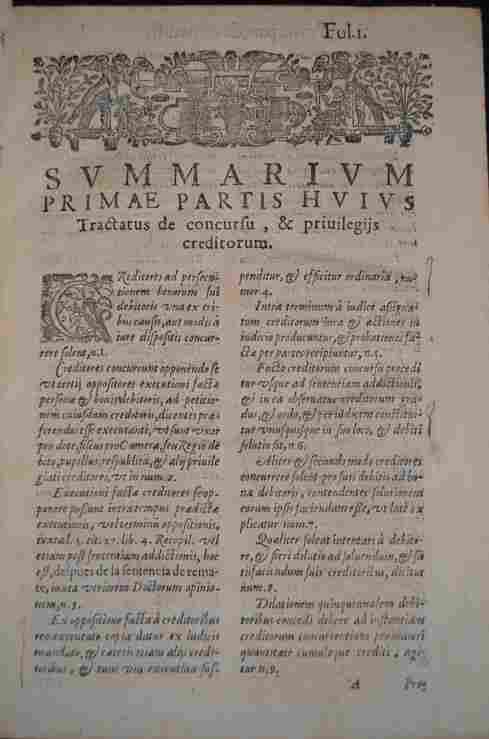 Fol.1.
SVMMARIVM
PRIMAE PARTIS HVIVS
Tractatus de concursu, & priuilegijs
creditorum.
CReditores ad persecu-
tionem bonorum sui
debitoris vna ex tri-
bus causis, aut modis à
iure dispositis concur-
rere solent, n.1.
Creditores concurrunt opponendo se
vt tertij oppositores executioni factæ
personæ & bonis debitoris, ad petitio-
nem cuiusdam creditoris, dicentes præ-
ferendos esse executanti, vt sunt vxor
pro dote, fiscus pro Camera, seu Regio de
bito, pupillus, respublica, & alij priuile
giati creditores, vt in num.2.
Executioni factæ creditores se op-
ponere possunt intra tempus prædictæ
executionis, vel terminum oppositionis,
iuxta l. tit.21. lib. 4. Recopil. vel
etiam post sententiam addictionis, hoc
est, despues de la sentencia de rema-
te, iuxta veriorem Doctorum opinio-
nem, n.3.
Ex oppositione facta à creditoribus
executate copia datur ex iudicis
mandato, & cæteris etiam alijs credi-
toribus, & tunc via executiua sus-
penditur, & efficitur ordinaria, nu-
mer 4.
Intra terminum à iudice assigna-
tum creditorum iura & actiones in
iudicio producuntur, & probationes fa-
cta per partes recipiuntur, n.5.
Facto creditorum concursu procedi
tur vsque ad sententiam addictionis,
& in ea obseruatur creditorum gra-
dus, & ordo, & per iudicem constitui-
tur vnusquisque in suo loco, & debiti
solutio fit, n.6.
Aliter & secundo modo creditores
concurrere solent pro suis debitis ad bo-
na debitoris, contendentes solutionem
eorum ipsis faciendam esse, vt late ex
plicatur num.7.
Qualiter soleat intentari à debito-
re, & fieri dilatio ad soluendum, & sa
tisfaciendum suis creditoribus, dicitur
num.8.
Dilationem quinquennalem debi-
toribus concedi debere ad instantiam
creditorum concurrentium pro maiori
quantitate cumuloque crediti, agi-
tur n.9.
A